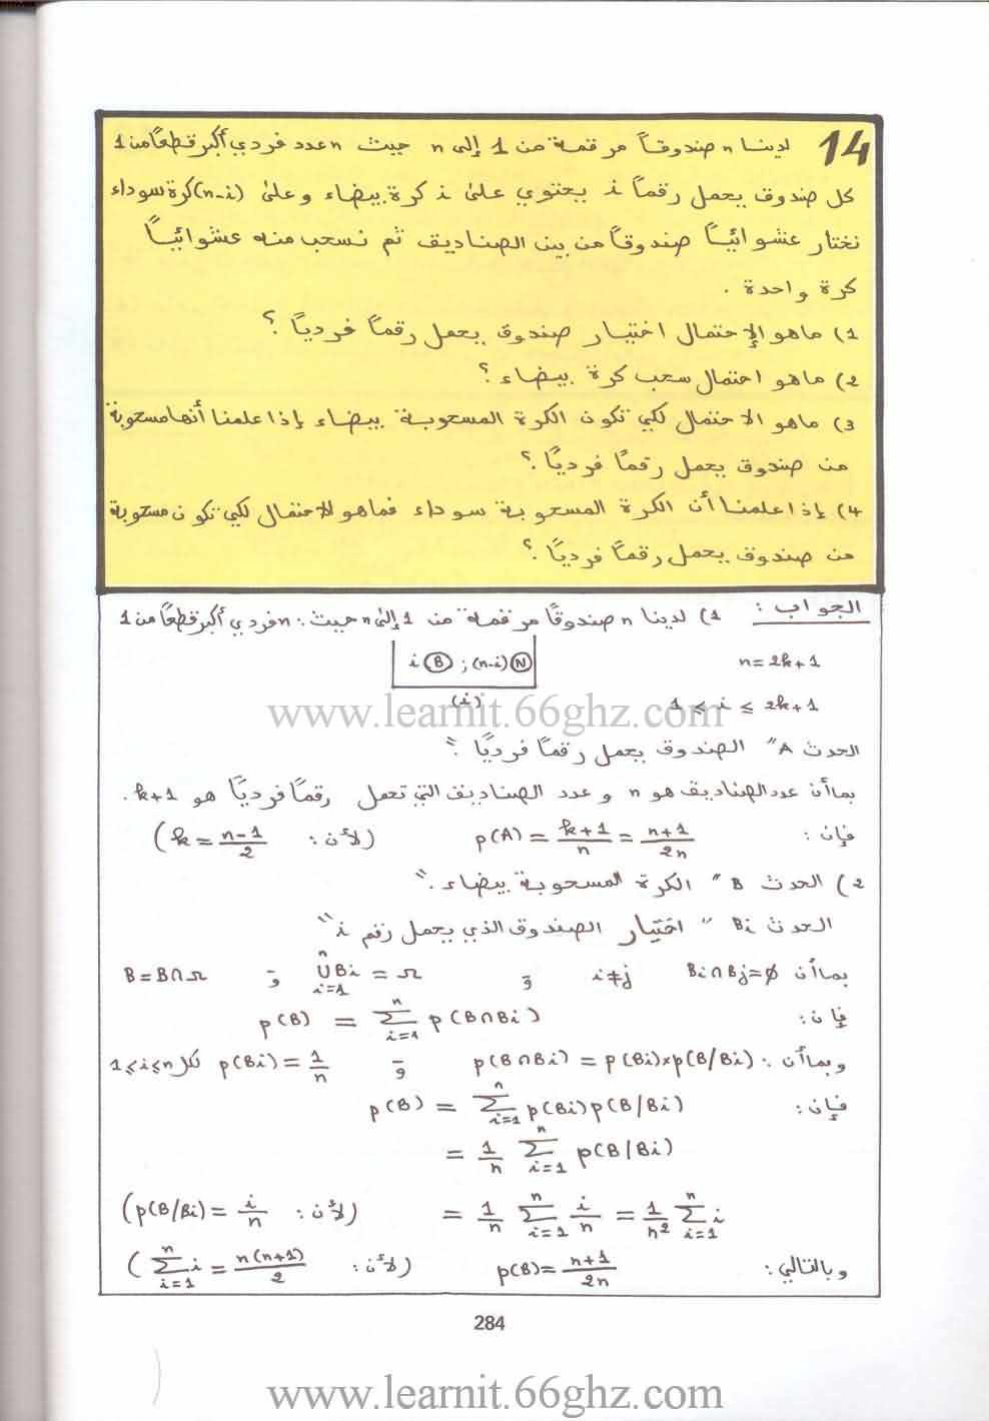 14 لدينا n صندوقاً مرقمة من 1 إلى n حيث n عدد فردي أكبر قطعاً من 1
كل صندوق يحمل رقماً i يحتوي على i كرة بيضاء وعلى (n-i) كرة سوداء
نختار عشوائياً صندوقاً من بين الصناديق ثم نسحب منه عشوائياً
كرة واحدة .
1) ماهو الإحتمال اختيار صندوق يحمل رقماً فردياً ؟
2) ماهو احتمال سحب كرة بيضاء ؟
3) ماهو الاحتمال لكي تكون الكرة المسحوبة بيضاء إذا علمنا أنها مسحوبة
من صندوق يحمل رقمًا فرديًا ؟
4) إذا علمنا أن الكرة المسحوبة سوداء فماهو الاحتمال لكي تكون مسحوبة
من صندوق يحمل رقمًا فرديًا ؟
الجواب : 1) لدينا n صندوقًا مرقمة من 1 إلى n حيث : n فردي أكبر قطعًا من 1
n = 2k+1
i (B) ; (n-i) (N)
(i)
1 ≤ i ≤ 2k+1
www.learnit.66ghz.com
الحدث A " الصندوق يحمل رقمًا فرديًا "
بماأن عدد الصناديق هو n وعدد الصناديق التي تحمل رقمًا فرديًا هو k+1 .
فإن : p(A) = (k+1)/n = (n+1)/2n (لأن : k = (n-1)/2)
2) الحدث B " الكرة المسحوبة بيضاء ."
الحدث Bi " اختيار الصندوق الذي يحمل رقم i "
بماأن Bi∩Bj=∅ i≠j و ⋃_{i=1}^{n} Bi = Ω و B = B∩Ω
فإن : p(B) = Σ_{i=1}^{n} p(B∩Bi)
وبماأن : p(B∩Bi) = p(Bi)×p(B/Bi) و p(Bi) = 1/n لكل 1≤i≤n
فإن : p(B) = Σ_{i=1}^{n} p(Bi)p(B/Bi)
= 1/n Σ_{i=1}^{n} p(B/Bi)
= 1/n Σ_{i=1}^{n} i/n = 1/n² Σ_{i=1}^{n} i (لأن : p(B/Bi) = i/n)
وبالتالي : p(B) = (n+1)/2n (لأن : Σ_{i=1}^{n} i = n(n+1)/2)
284
www.learnit.66ghz.com